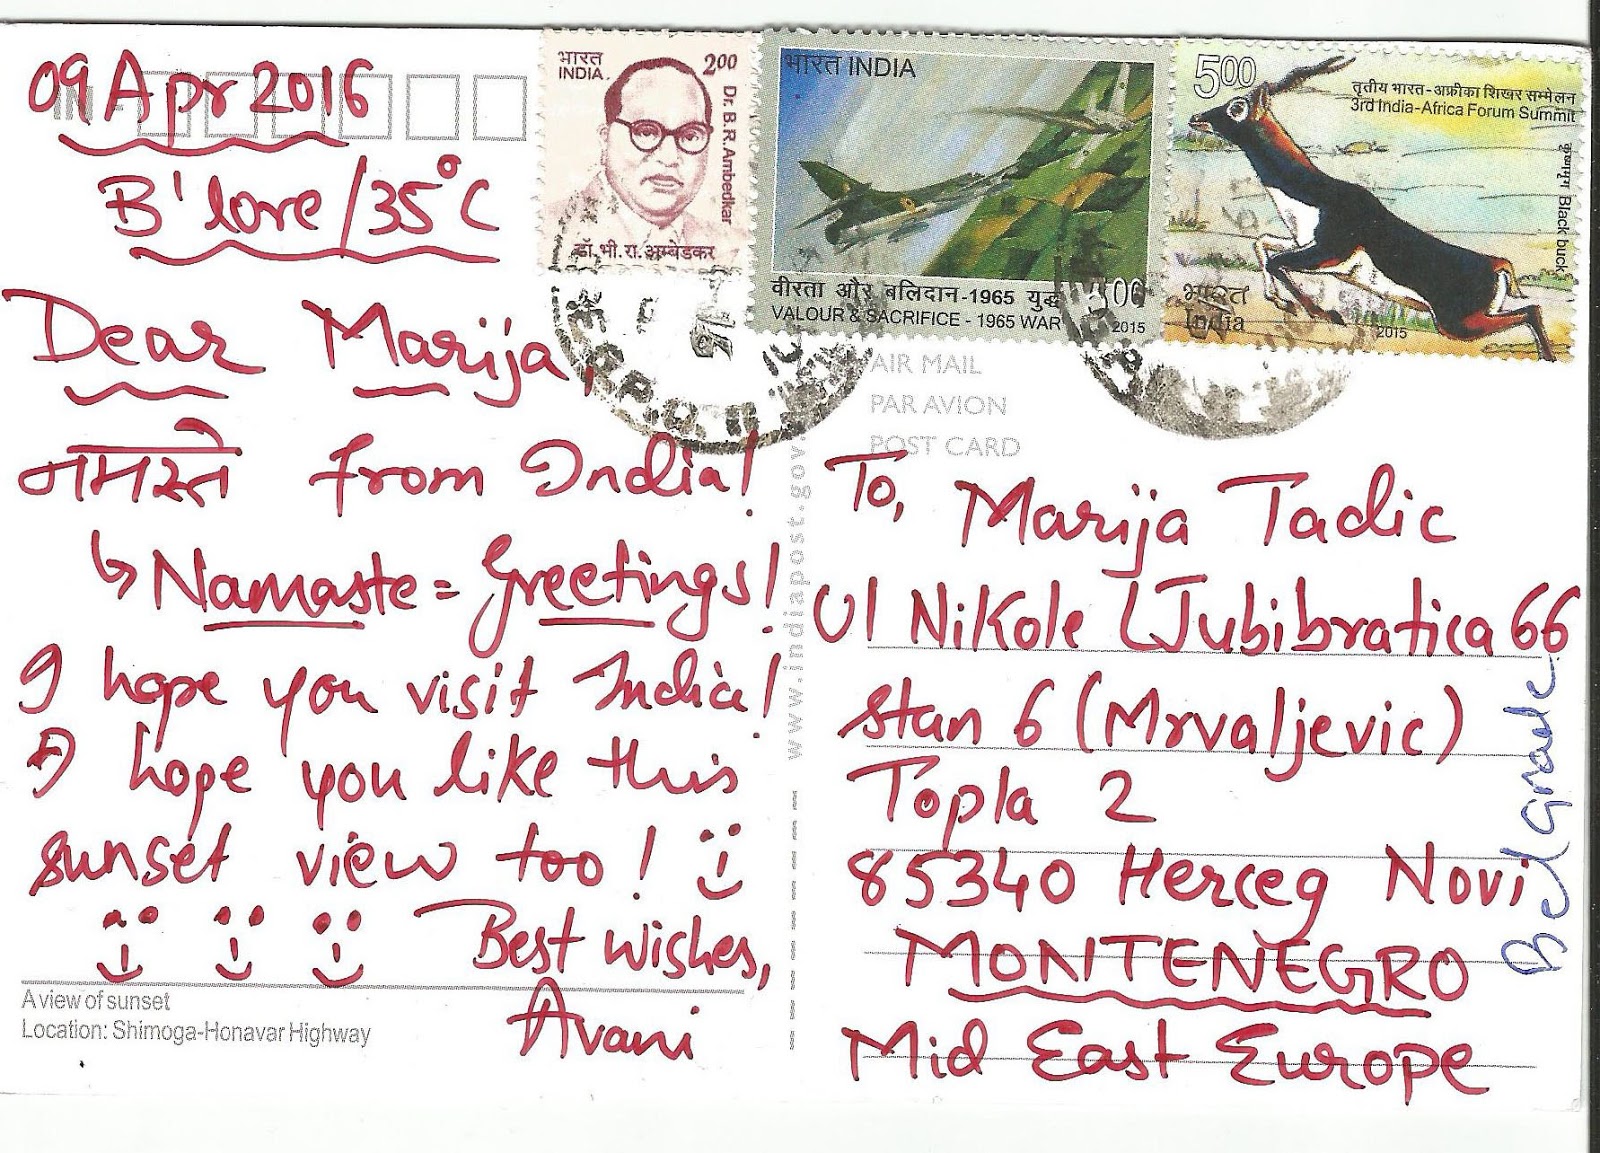 09 Apr 2016
B'lore/35°C
Dear Marija,
नमस्ते from India!
↳ Namaste = Greetings!
I hope you visit India!
I hope you like this
sunset view too! :)
Best wishes,
Avani
A view of sunset
Location: Shimoga-Honavar Highway
www.indiapost.gov.
भारत
INDIA
2.00
Dr. B.R. Ambedkar
डॉ. भी. रा. अम्बेडकर
भारत INDIA
वीरता और बलिदान-1965 युद्ध
VALOUR & SACRIFICE - 1965 WAR
5.00
2015
5.00
तृतीय भारत-अफ्रीका शिखर सम्मेलन
3rd India-Africa Forum Summit
कृष्णमृग Black buck
भारत
India
2015
AIR MAIL
PAR AVION
POST CARD
To, Marija Tadic
Ul Nikole Ljubibratica 66
stan 6 (Mrvaljevic)
Topla 2
85340 Herceg Novi
MONTENEGRO
Mid East Europe
Belgrade